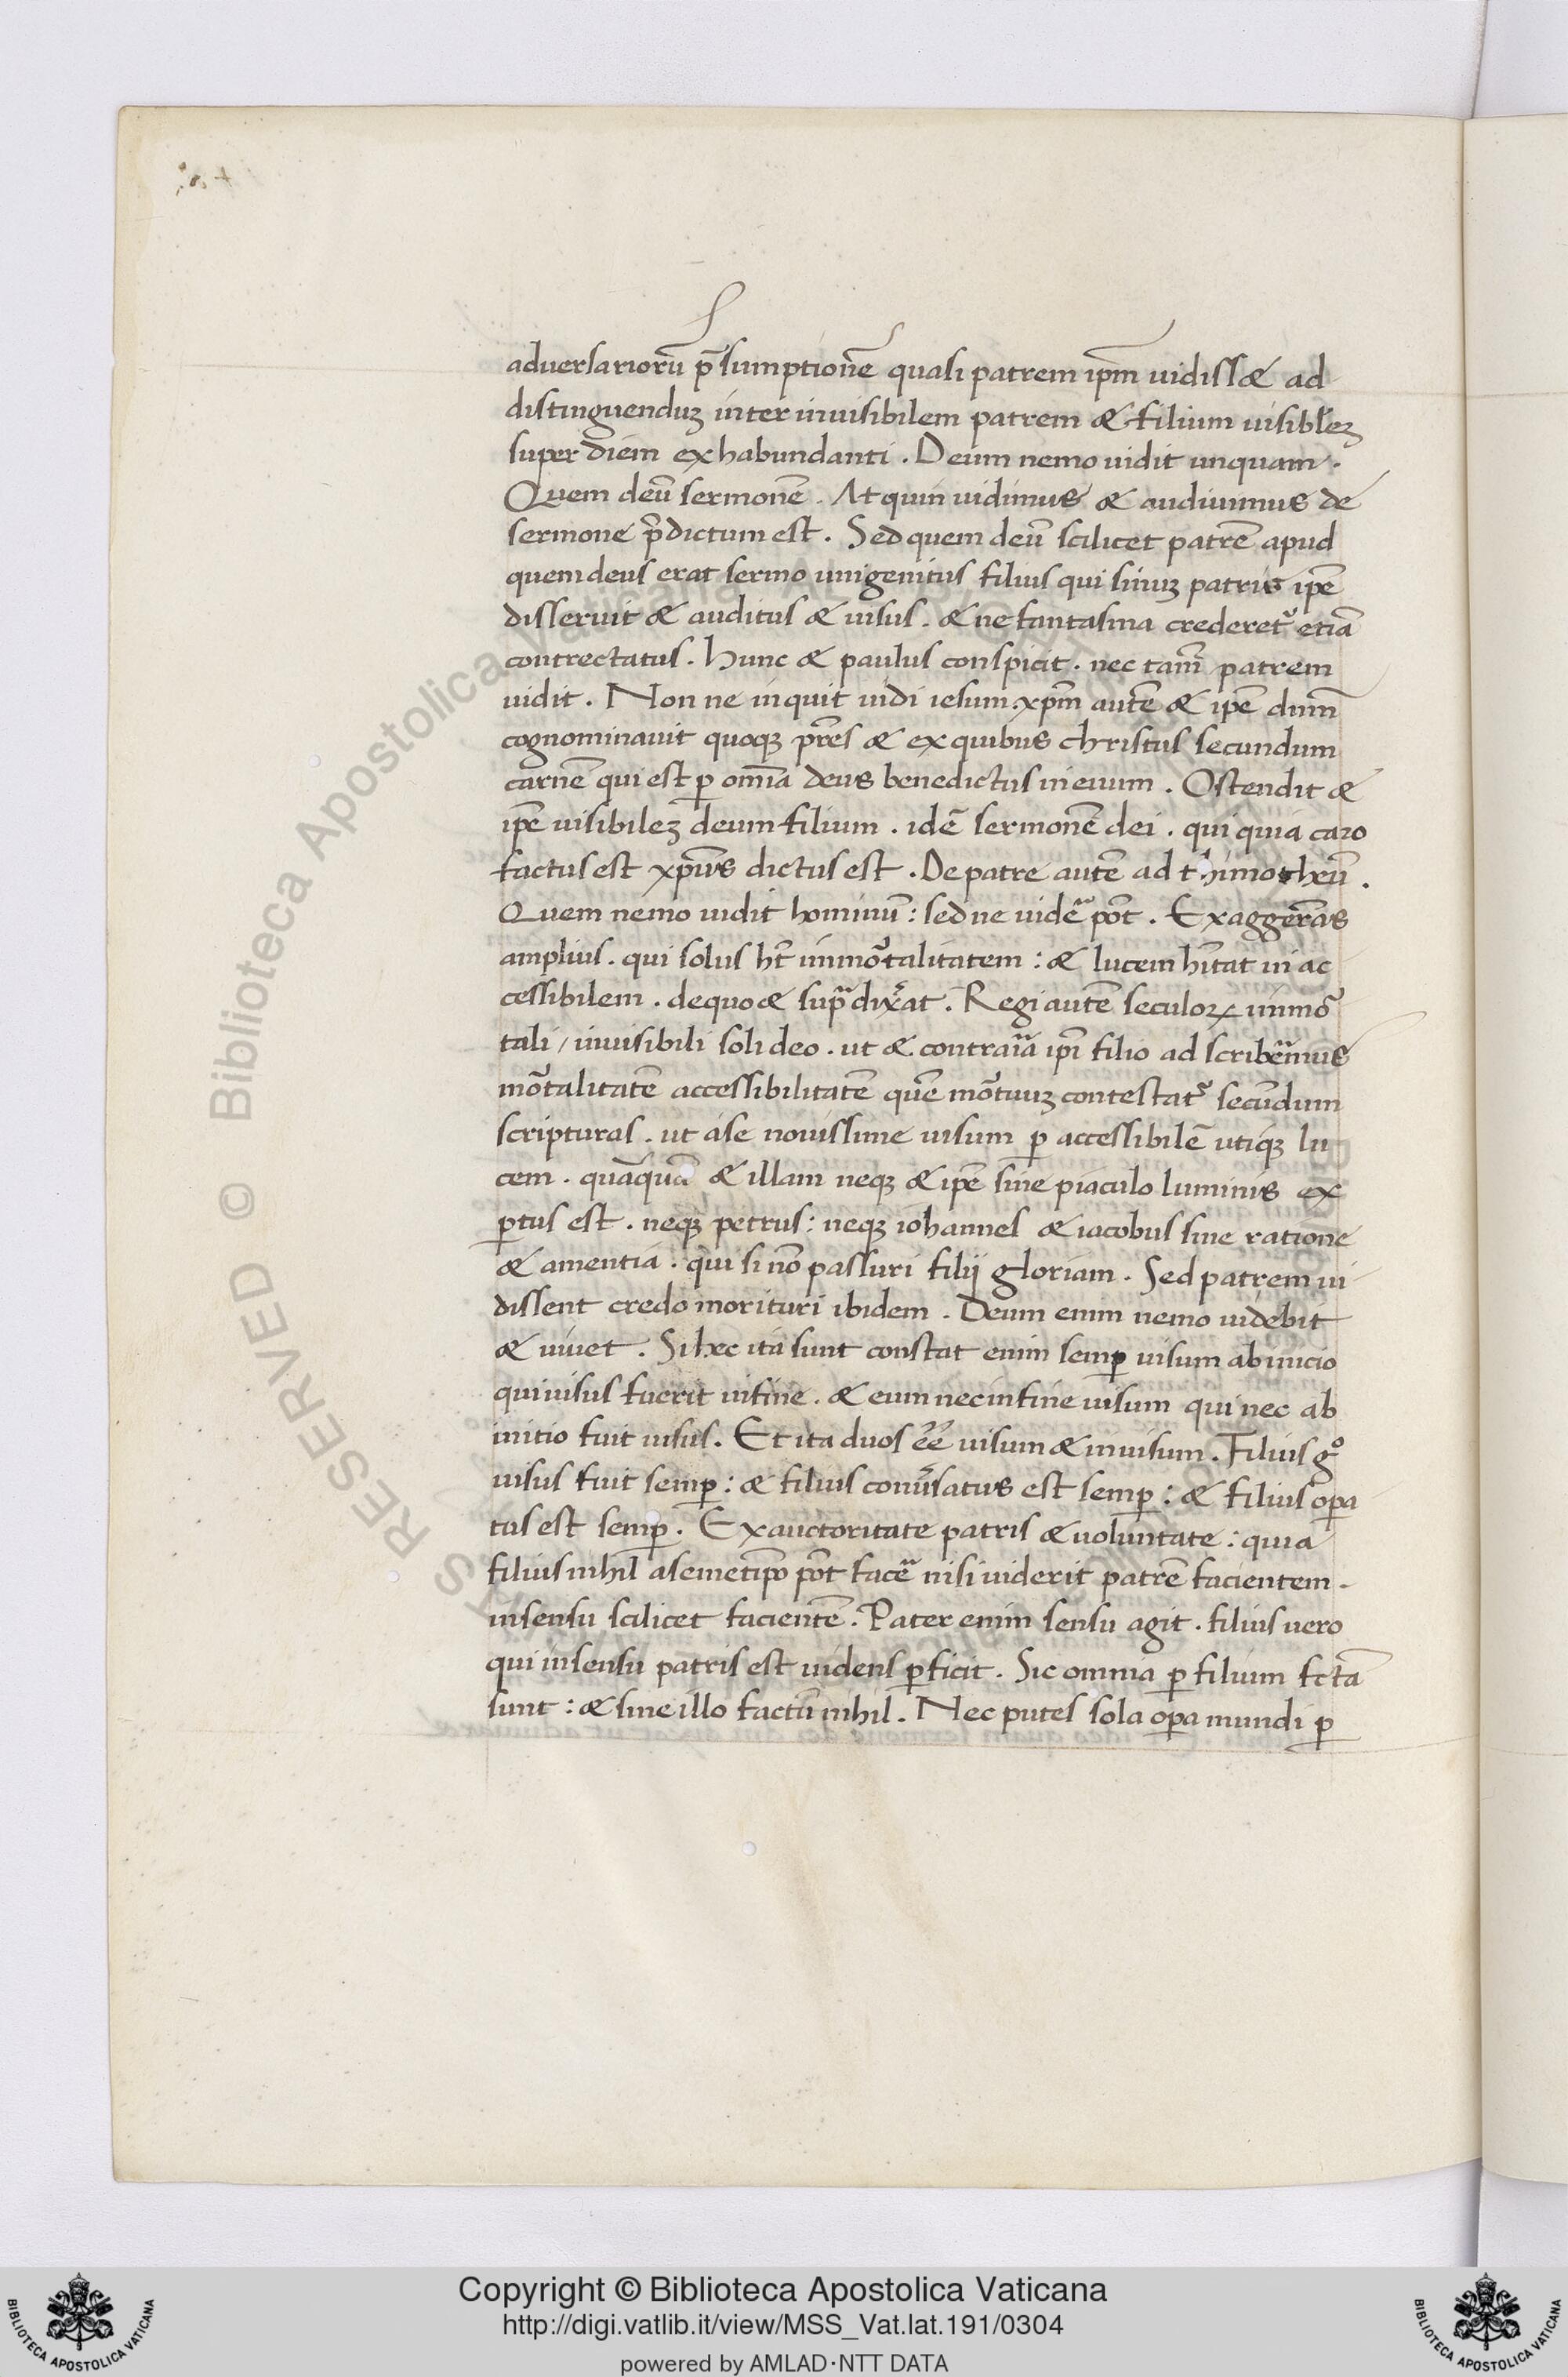 adversariorū p̄sumptionē quasi patrem ip̄m uidissæ ad
distinguenduꝫ inter inuisibilem patrem & filium uisibłeꝫ
super diem ex habundanti . Deum nemo uidit unquam .
Quem deū sermonē . At quin uidimus & audiuimus de
sermone p̄dictum est . Sed quem deū scilicet patrē apud
quem deus erat sermo unigenitus filius qui sinuꝫ patris ip̄e
disseruit & auditus & uisus . & ne fantasma crederet᷑ etiā
contrectatus . hunc & paulus conspicit . nec tam̄ patrem
uidit . Non ne inquit uidi iesum . xp̄m autē & ip̄e dum̄
cognominauit quoqꝫ pr̄es & ex quibus christus secundum
carnē qui est ꝑ om̄ia deus benedictus in euum . Ostendit &
ip̄e uisibileꝫ deum filium . idē sermonē dei . qui quia caro
factus est xp̄us dictus est . De patre autē ad thimotheū .
Quem nemo uidit hominū : sed ne uidē pōt . Exaggerās
amplius . qui solus ht̄ immo᷑talitatem : & lucem hītat in ac
cessibilem . de quo & sup̄ dix̄at . Regi autē seculoꝝ immo᷑
tali / inuisibili soli deo . ut & contraīa ip̄i filio ad scribēmus
mo᷑talitatē accessibilitatē quē mo᷑tuuꝫ contestat᷑ secūdum
scripturas . ut a se nouissime uisum ꝑ accessibilē utiqꝫ lu
cem . quāquā & illam neqꝫ & ip̄e sine piaculo luminis ex
ꝑtus est . neqꝫ petrus : neqꝫ iohannes & iacobus sine ratione
& amentia . qui si nō passuri filij gloriam . Sed patrem ui
dissent credo morituri ibidem . Deum enim nemo uidebit
& uiuet . Si hec ita sunt constat enim semꝑ uisum ab inicio
qui uisus fuerit in fine . & eum nec in fine uisum qui nec ab
initio fuit uisus . Et ita duos ēē uisum & inuisum . Filius gͦ
uisus fuit semꝑ : & filius conūsatus est semꝑ : & filius oꝑa
tus est semꝑ . Ex auctoritate patris & uoluntate : quia
filius nihil a semetip̄o pōt facē nisi uiderit patrē facientem .
in sensu scilicet facientē . Pater enim sensu agit . filius uero
qui in sensu patris est uidens ꝑficit . Sic omnia ꝑ filium fctā
sunt : & sine illo factū nihil . Nec putes sola oꝑa mundi ꝑ
RESERVED © Biblioteca Apostolica Vaticana
Copyright © Biblioteca Apostolica Vaticana
http://digi.vatlib.it/view/MSS_Vat.lat.191/0304
powered by AMLAD·NTT DATA
BIBLIOTECA APOSTOLICA VATICANA
BIBLIOTECA APOSTOLICA VATICANA